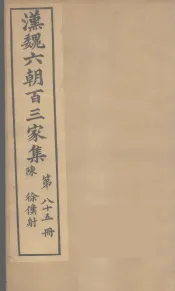 漢魏六朝百三家集
陳 徐僕射
第八十五冊